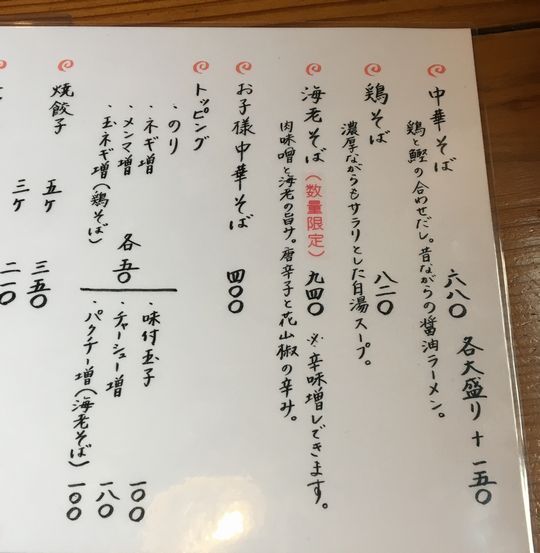 中華そば 六八〇 各大盛り+一五〇
鶏と鰹の合わせだし。昔ながらの醤油ラーメン。
鶏そば 八二〇
濃厚ながらもサラリとした白湯スープ。
海老そば(数量限定) 九四〇 ※辛味増しできます。
肉味噌と海老の旨サ。唐辛子と花山椒の辛み。
お子様中華そば 四〇〇
トッピング
・のり
・ネギ増
・メンマ増
・玉ネギ増(鶏そば)
各五〇
・味付玉子 一〇〇
・チャーシュー増 一八〇
・パクチー増(海老そば) 一〇〇
焼餃子 五ケ 三五〇
三ケ 二一〇